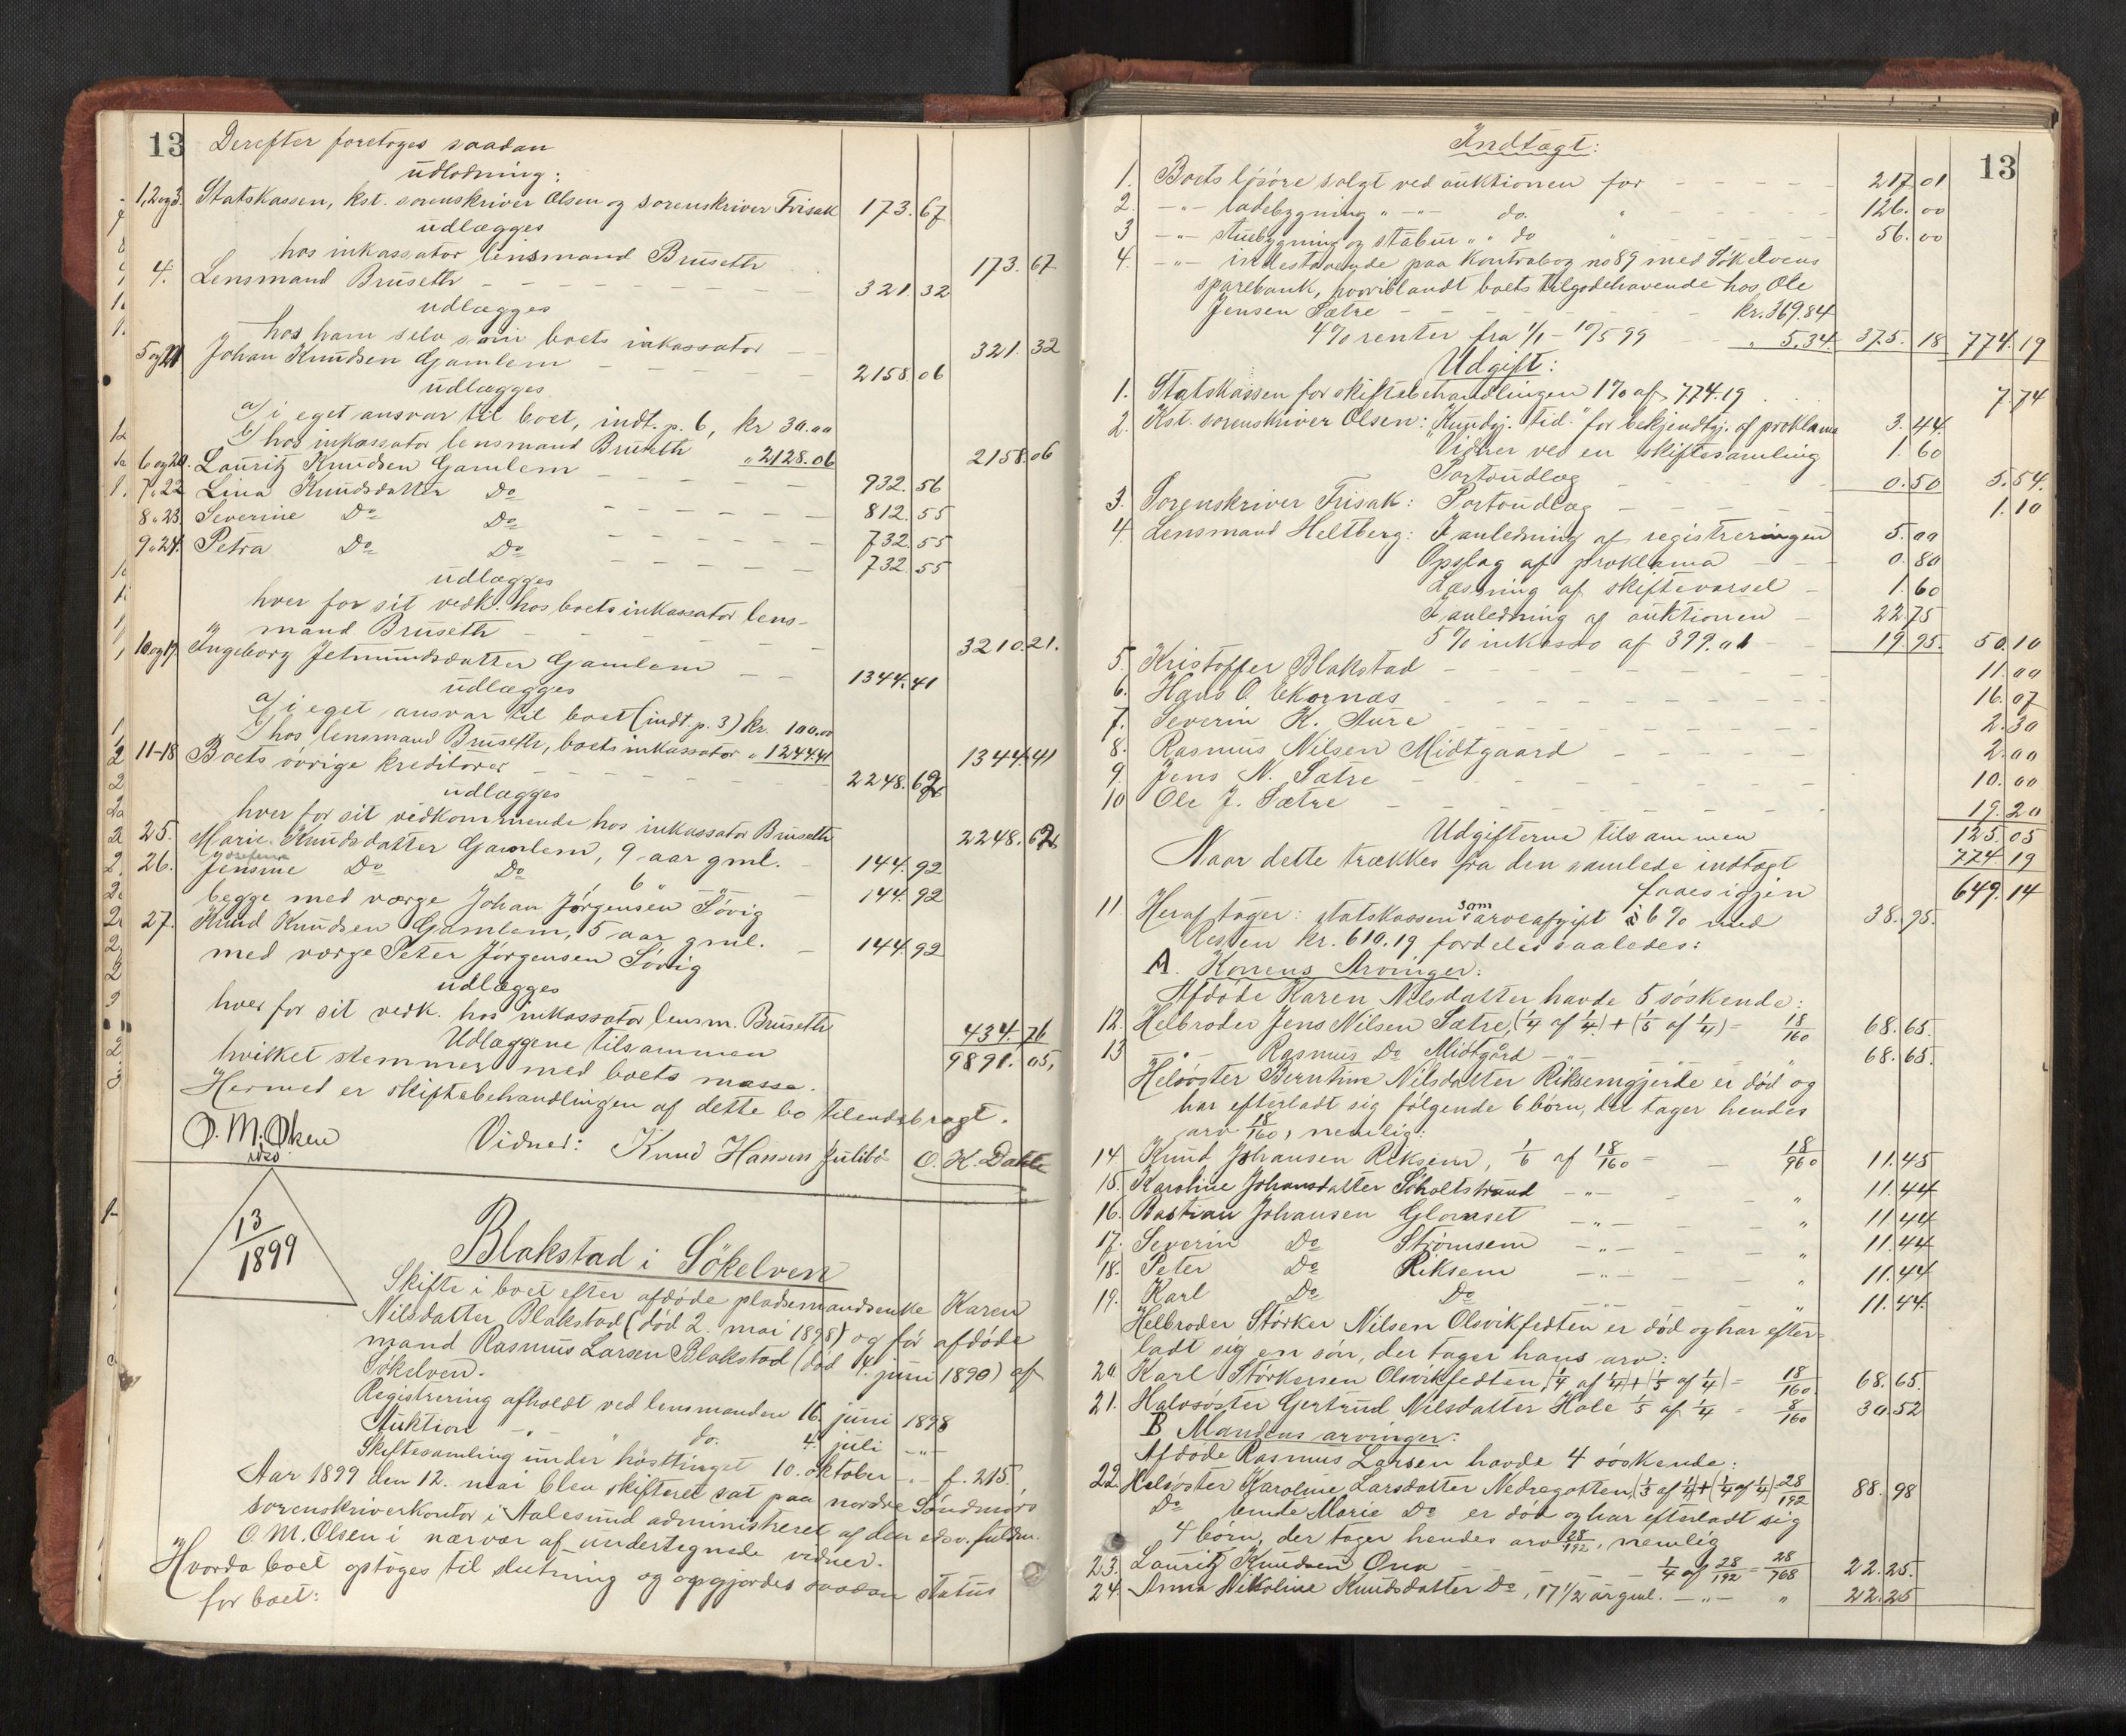 13
Derefter foretoges saadan
udlodning:
1,2 og 3. Statskassen, kst. sorenskriver Olsen og sorenskriver Frisak 173.67
udlægges
hos inkassator lensmand Bruseth 173.67
4. Lensmand Bruseth - 321.32
udlægges
hos ham selv som boets inkassator - 321.32
5 og 21 Johan Knudsen Gamlem - 2158.06
udlægges
a) i eget ansvar til boet, indt. p. 6, kr 30.00
b) hos inkassator lensmand Bruseth " 2128.06 2158.06
6 og 20. Lauritz Knudsen Gamlem - 932.56
7 " 22 Lina Knudsdatter Do - 812.55
8 " 23 Severine Do Do - 732.55
9 " 24. Petra Do Do - 732.55
udlægges
hver for sit vedk. hos boets inkassator lens-
mand Bruseth - 3210.21.
10 og 19. Ingeborg Jetmundsdatter Gamlem - 1344.41
udlægges
a) i eget ansvar til boet (indt. p. 3) kr. 100.00
b) hos lensmand Bruseth, boets inkassator " 1244.41 1344.41
11-18 Boets øvrige kreditorer - 2248.62
udlægges
hver for sit vedkommende hos inkassator Bruseth 2248.62
25. Marie Knudsdatter Gamlem, 9 aar gml. - 144.92
Josefine
26. Jensine Do Do 6 " " - 144.92
begge med værge Johan Jørgensen Søvig
27. Knud Knudsen Gamlem, 5 aar gml. - 144.92
med værge Peter Jørgensen Søvig
udlægges
hver for sit vedk. hos inkassator lensm. Bruseth 434.76
Udlæggene tilsammen 9891.05,
hvilket stemmer med boets masse.
Hermed er skiftebehandlingen af dette bo tilendebragt.
O. M. Olsen Vidner: Knud Hansen Julibø O. K. Dahle
13/1899
Blakstad i Sökelven
Skifte i boet efter afdøde pladsemandsenke Karen
Nilsdatter Blakstad (død 2. mai 1898) og før afdøde
mand Rasmus Larsen Blakstad (død 4. juni 1890) af
Sökelven.
Registrering afholdt ved lensmanden 16. juni 1898
Auktion - " - " do. 4. juli - " -
Skiftesamling under høsttinget 10. oktober - " - f. 215.
Aar 1899 den 12. mai blev skifteret sat paa nordre Søndmørs
sorenskriverkontor i Aalesund administreret af den edsv. fuldm.
O. M. Olsen i nærvær af undertegnede vidner.
Hvorda boet optoges til slutning og opgjordes saadan status
for boet:
13
Indtægt:
1. Boets løsøre solgt ved auktionen for - 217.01
2. - " - ladebygning " - " - do. " - 126.00
3 - " - stuebygning og stabur " " do " - 56.00
4. - " - indestaaende paa Kontrabog no 89 med Sökelvens
sparebank, hvoriblandt boets tilgodehavende hos Ole
Jensen Sætre - kr. 369.84
4% renter fra 1/1 - 10/5 99 " 5.34. 375.18 774.19
Udgift:
1. Statskassen for skiftebehandlingen 1% af 774.19 7.74
2. Kst. sorenskriver Olsen: "Kundgj. tid." for bekjendtgj. af proklama 3.44.
Vidner ved en skiftesamling 1.60
Portoudlæg - 0.50 5.54.
3. Sorenskriver Frisak: Portoudlæg - 1.10
4. Lensmand Heltberg: I anledning af registreringen 5.00
Opslag af proklama - 0.80
Læsning af skiftevarsel - 1.60
I anledning af auktionen - 22.75
5% inkasso af 399.01 - 19.95. 50.10
5. Kristoffer Blakstad - 11.00
6. Hans O. Ekornæs - 16.07
7. Severin K. Aure - 2.30
8. Rasmus Nilsen Midtgaard - 2.00
9. Jens N. Sætre - 10.00
10 Ole J. Sætre - 19.20
Udgifterne tilsammen 125.05
Naar dette trækkes fra den samlede indtægt 774.19
faaes igjen 649.14
11. Heraf tager: statskassen som arveafgift à 6% med 38.95.
Resten kr. 610.19 fordeles saaledes:
A. Konens Arvinger:
Afdøde Karen Nilsdatter havde 5 søskende:
12. Helbroder Jens Nilsen Sætre, (1/4 af 1/4) + (1/5 af 1/4) = 18/160 68.65.
13 " - Rasmus Do Midtgård - " - " 68.65.
Helsøster Berntine Nilsdatter Riksemgjerde er død og
har efterladt sig følgende 6 børn, der tager hendes
arv 18/160, nemlig:
14 Knud Johansen Riksem, 1/6 af 18/160 = - 18/960 11.45
15. Karoline Johansdatter Søholtstrand - " - " 11.44
16. Bastian Johansen Glomset - " - " 11.44
17. Severin Do Strømsem - " - " 11.44
18. Peter Do Riksem - " - " 11.44
19. Karl Do Do - " - " 11.44.
Helbroder Størker Nilsen Olsvikfedten er død og har efter-
ladt sig en søn, der tager hans arv:
20. Karl Størkersen Olsvikfedten, (1/4 af 1/4) + (1/5 af 1/4) = 18/160 68.65.
21. Halvsøster Gertrud Nilsdatter Hole 1/5 af 1/4 = 8/160 30.52
B Mandens arvinger:
Afdøde Rasmus Larsen havde 4 søskende:
22. Helsøster Karoline Larsdatter Nedregotten, (1/3 af 1/4) + (1/4 af 1/4) 28/192 88.98
Do Marie Do er død og har efterladt sig
4 børn, der tager hendes arv 28/192, nemlig
23. Lauritz Knudsen Ona - 1/4 af 28/192 = 28/768 22.25.
24. Anna Nikoline Knudsdatter Do, 17 1/2 år gml. - " - " 22.25